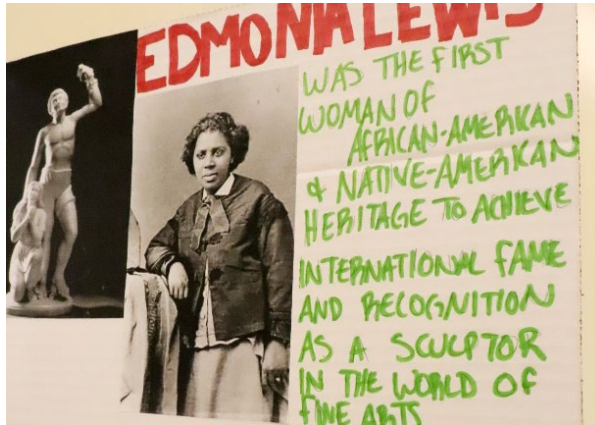 EDMONIA LEWIS
WAS THE FIRST
WOMAN OF
AFRICAN-AMERICAN
& NATIVE-AMERICAN
HERITAGE TO ACHIEVE
INTERNATIONAL FAME
AND RECOGNITION
AS A SCULPTOR
IN THE WORLD OF
FINE ARTS